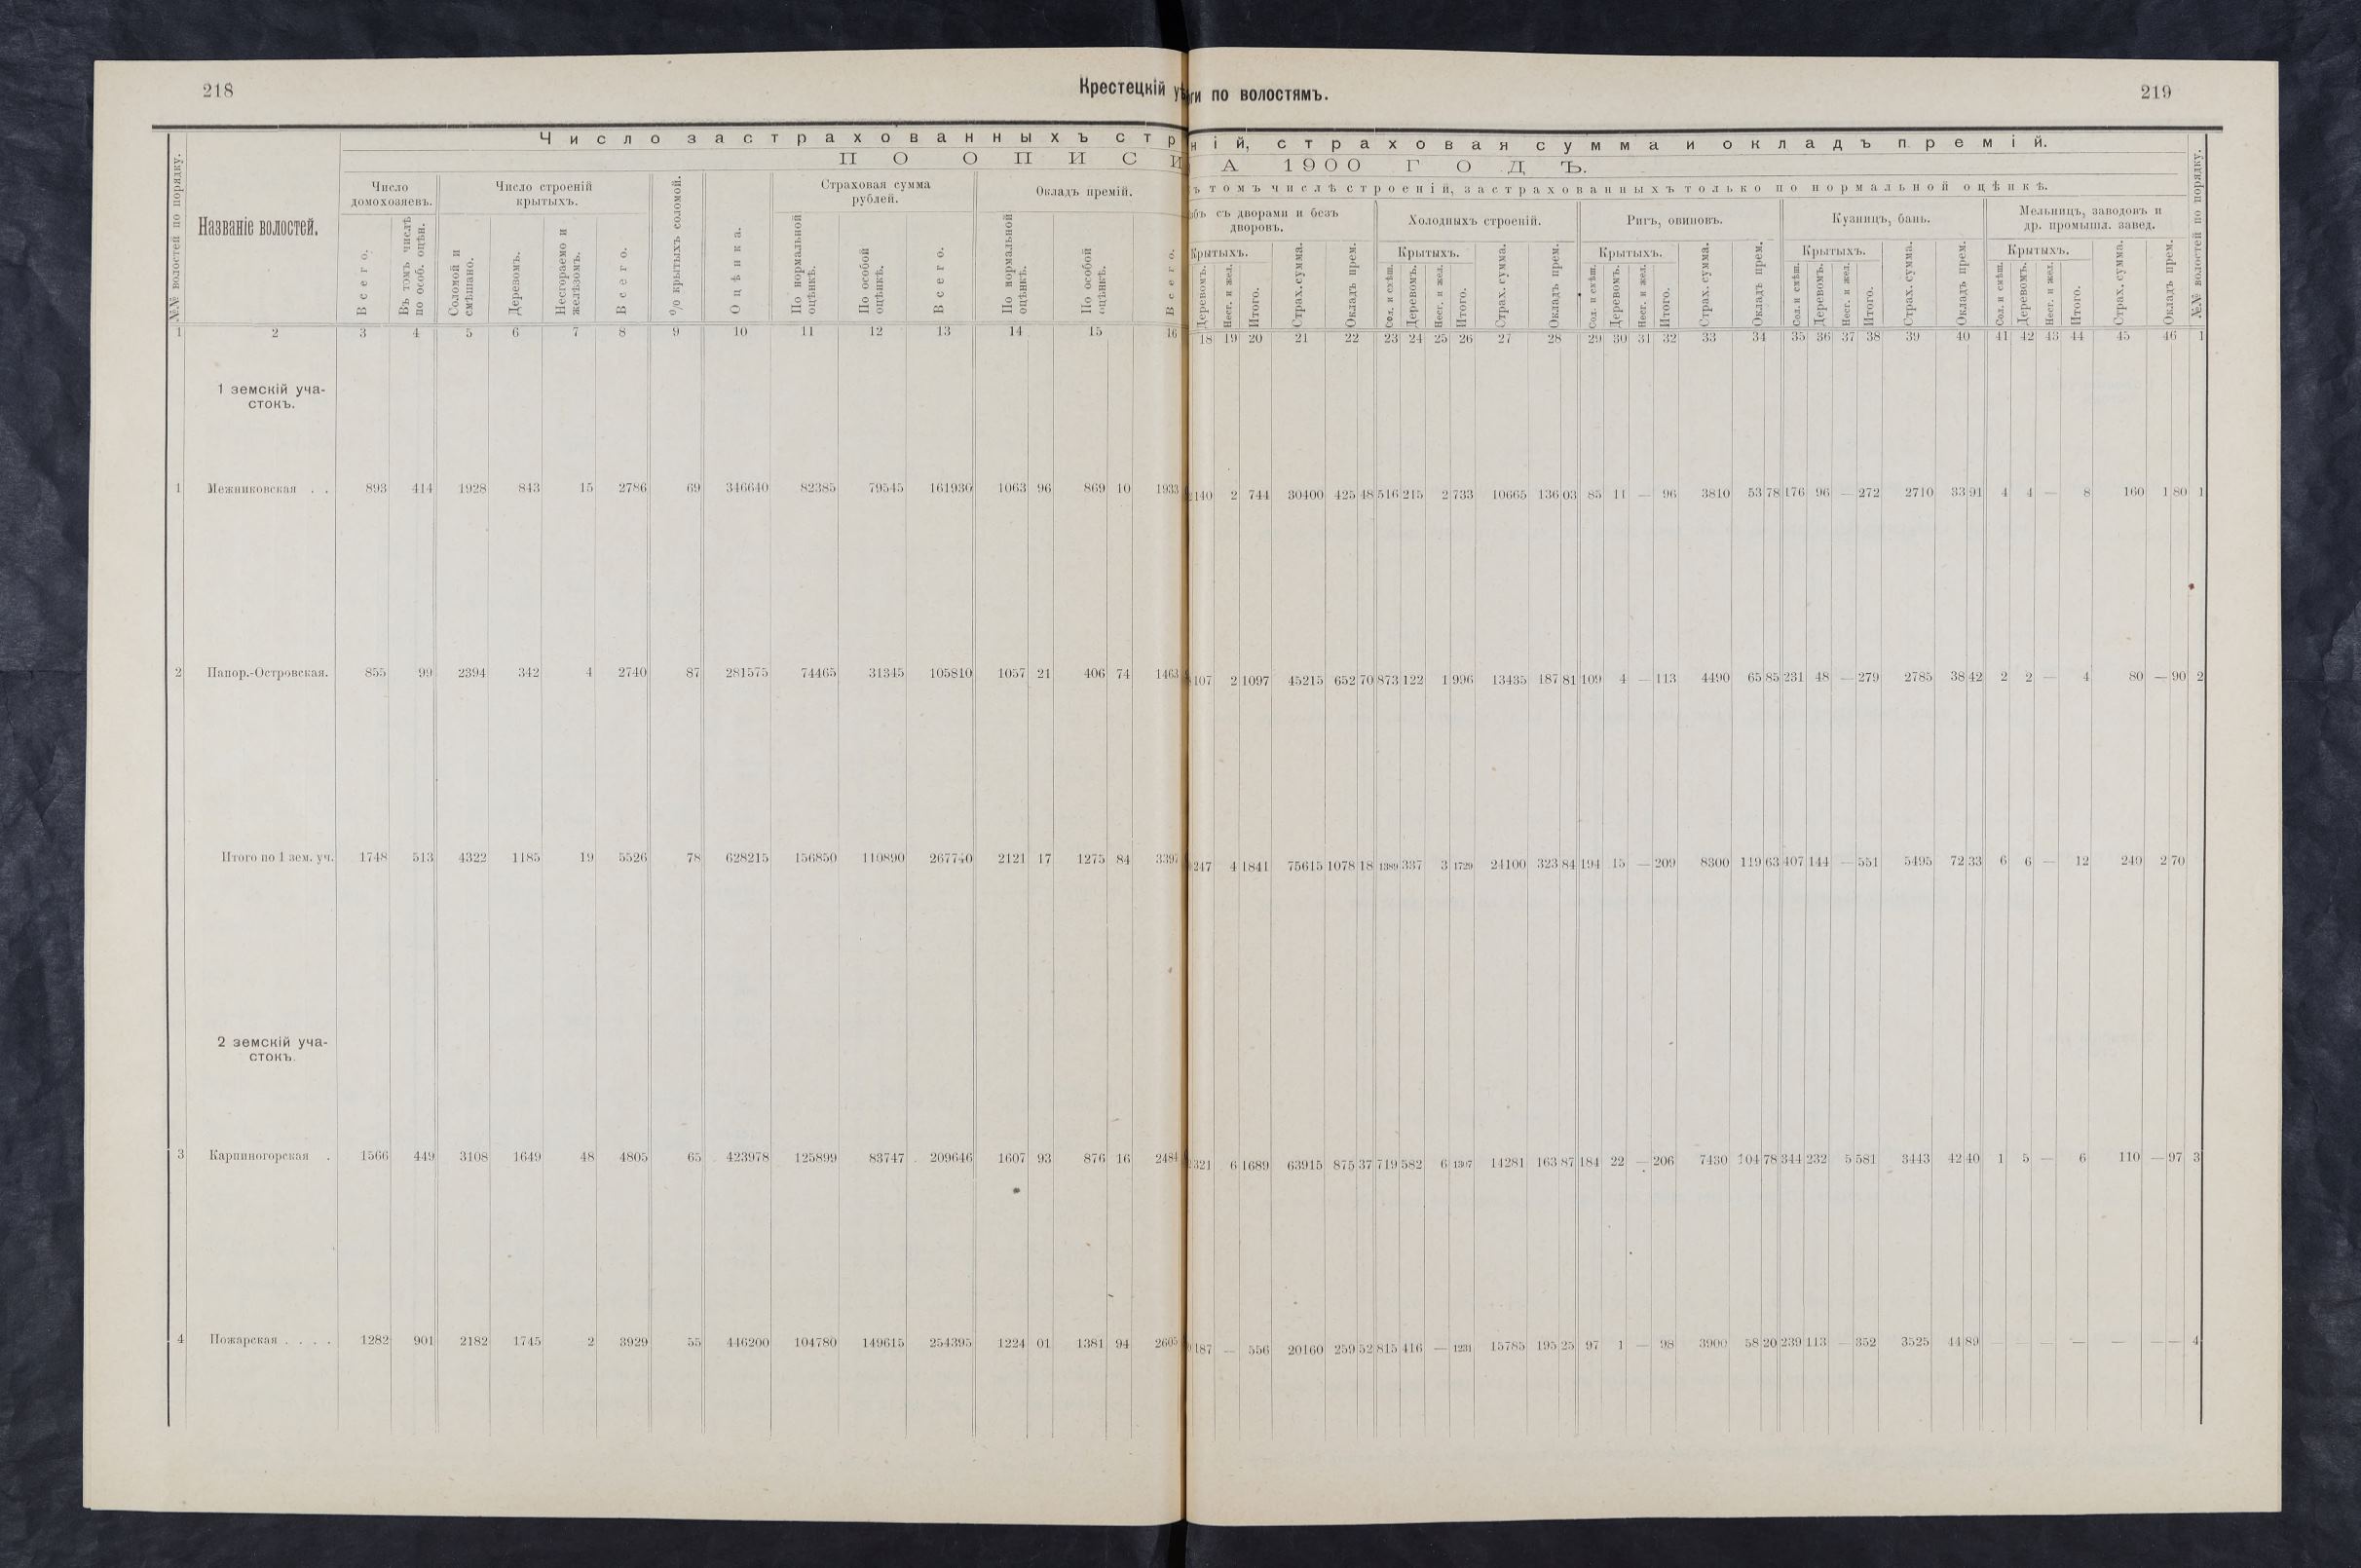 218
Крестецкій уѣ
Число застрахованныхъ стр
ПО ОПИСИ
№№ волостей по порядку.
Названіе волостей.
Число домохозяевъ.
Всего.
Въ томъ числѣ по особ. оцѣн.
Число строеній крытыхъ.
Соломой и смѣшано.
Деревомъ.
Несгораемо и желѣзомъ.
Всего.
% крытыхъ соломой.
Оцѣнка.
Страховая сумма рублей.
По нормальной оцѣнкѣ.
По особой оцѣнкѣ.
Всего.
Окладъ премій.
По нормальной оцѣнкѣ.
По особой оцѣнкѣ.
Всего.
1 2 3 4 5 6 7 8 9 10 11 12 13 14 15 16
1 земскій уча-
стокъ.
1 Межниковская . . 893 414 1928 843 15 2786 69 346640 82385 79545 161930 1063 96 869 10 1933
2 Папор.-Островская. 855 99 2394 342 4 2740 87 281575 74465 31345 105810 1057 21 406 74 1463
Итого по 1 зем. уч. 1748 513 4322 1185 19 5526 78 628215 156850 110890 267740 2121 17 1275 84 3397
2 земскій уча-
стокъ.
3 Карпиногорская . 1566 449 3108 1649 48 4805 65 423978 125899 83747 209646 1607 93 876 16 2484
4 Пожарская . . . . 1282 901 2182 1745 2 3929 55 446200 104780 149615 254395 1224 01 1381 94 2605
219
ги по волостямъ.
ній, страховая сумма и окладъ премій.
А 1900 ГОДЪ.
ъ томъ числѣ строеній, застрахованныхъ только по нормальной оцѣнкѣ.
бъ съ дворами и безъ дворовъ.
Крытыхъ.
Деревомъ.
Несг. и жел.
Итого.
Страх. сумма.
Окладъ прем.
Холодныхъ строеній.
Крытыхъ.
Сол. и смѣш.
Деревомъ.
Несг. и жел.
Итого.
Страх. сумма.
Окладъ прем.
Ригъ, овиновъ.
Крытыхъ.
Сол. и смѣш.
Деревомъ.
Несг. и жел.
Итого.
Страх. сумма.
Окладъ прем.
Кузницъ, бань.
Крытыхъ.
Сол. и смѣш.
Деревомъ.
Несг. и жел.
Итого.
Страх. сумма.
Окладъ прем.
Мельницъ, заводовъ и др. промышл. завед.
Крытыхъ.
Сол. и смѣш.
Деревомъ.
Несг. и жел.
Итого.
Страх. сумма.
Окладъ прем.
№№ волостей по порядку.
18 19 20 21 22 23 24 25 26 27 28 29 30 31 32 33 34 35 36 37 38 39 40 41 42 43 44 45 46 1
140 2 744 30400 425 48 516 215 2 733 10665 136 03 85 11 — 96 3810 53 78 176 96 — 272 2710 33 91 4 4 — 8 160 1 80 1
107 2 1097 45215 652 70 873 122 1 996 13435 187 81 109 4 — 113 4490 65 85 231 48 — 279 2785 38 42 2 2 — 4 80 — 90 2
247 4 1841 75615 1078 18 1389 337 3 1729 24100 323 84 194 15 — 209 8300 119 63 407 144 — 551 5495 72 33 6 6 — 12 240 2 70
321 6 1689 63915 875 37 719 582 6 1307 14281 163 87 184 22 — 206 7430 104 78 344 232 5 581 3443 42 40 1 5 — 6 110 — 97 3
187 — 556 20160 259 52 815 416 — 1231 15785 195 25 97 1 — 98 3900 58 20 239 113 — 352 3525 44 89 — — — — — — — 4